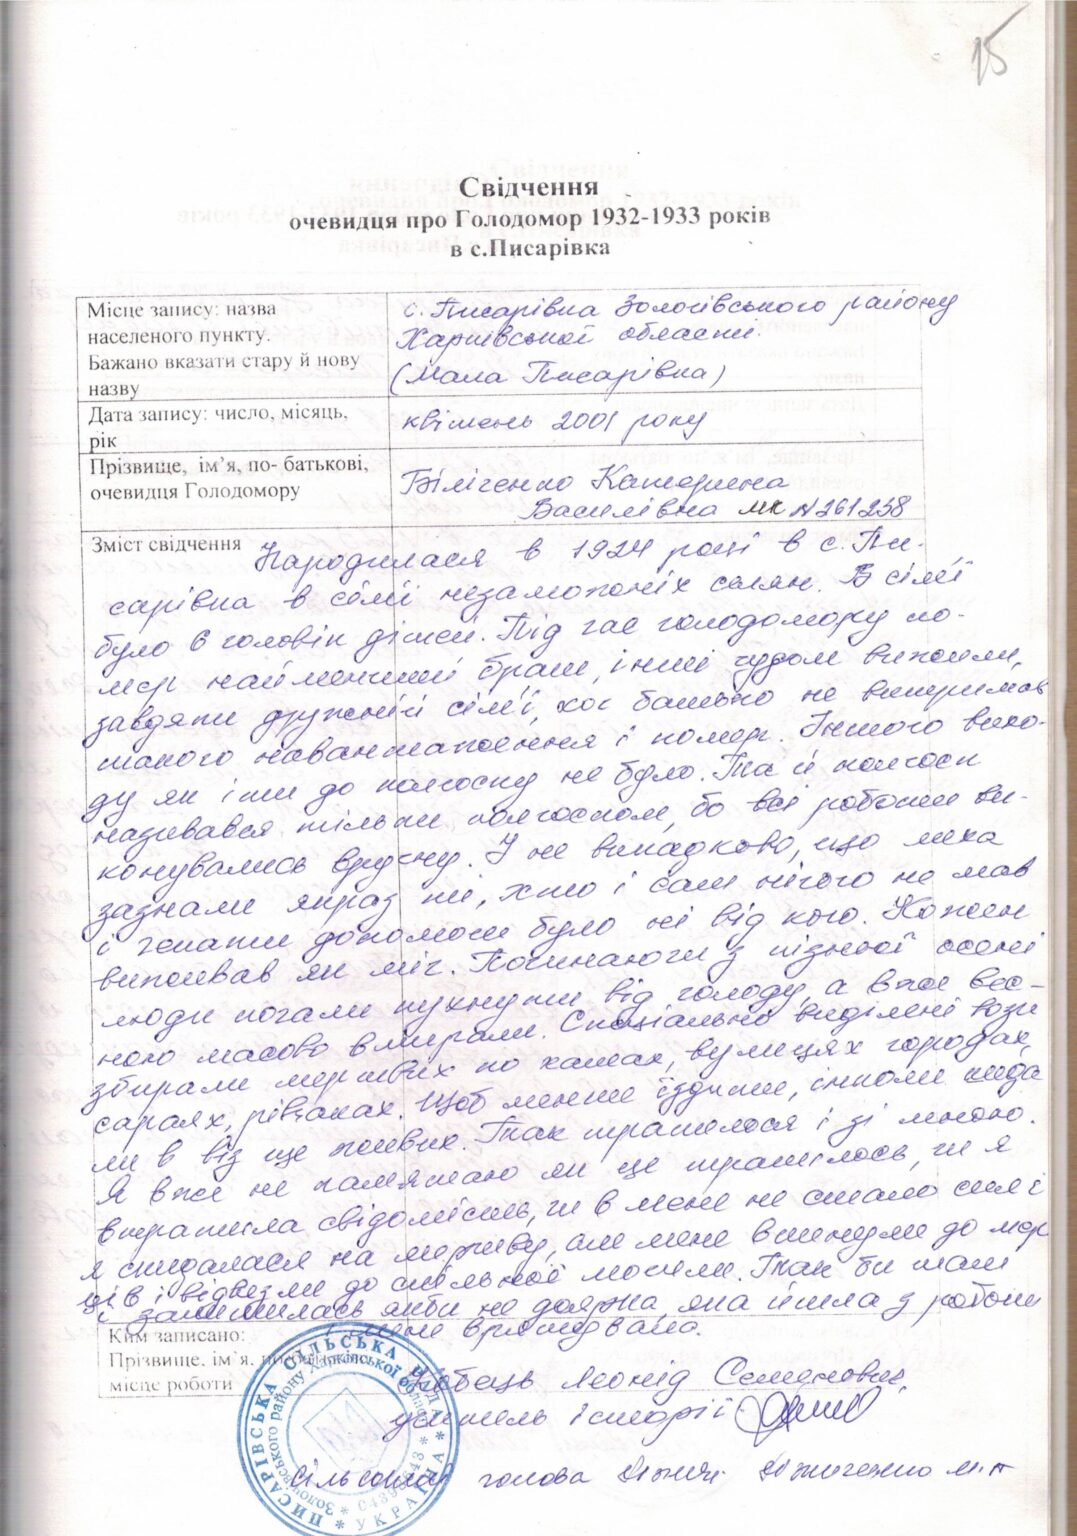 15
Свідчення
очевидця про Голодомор 1932-1933 років
в с.Писарівка
Місце запису: назва
населеного пункту.
Бажано вказати стару й нову
назву
с. Писарівка Золочівського району
Харківської області.
(Мала Писарівка)
Дата запису: число, місяць,
рік
квітень 2001 року
Прізвище, ім’я, по- батькові,
очевидця Голодомору
Біліченко Катерина
Василівна МК №261238
Зміст свідчення
Народилася в 1924 році в с. Пи-
сарівка в сім'ї незаможніх селян. В сім'ї
було 6 головік дітей. Під час голодомору по-
мер найменший брат, інші чудом вижили,
завдяки дружній сім'ї, хоч батько не витримав
такого навантаження і помер. Іншого вихо-
ду як іти до колгоспу не було. Та й колгосп
називався тільки колгоспом, бо всі роботи ви-
конувались вручну. І не випадково, що лиха
зазнали якраз ті, хто і сам нічого не мав
і чекати допомоги було ні від кого. Кожен
виживав як міг. Починаючи з пізньої осені
люди почали пухнути від голоду, а вже вес-
ною масово вмирали. Спеціально виділені вози
збирали мертвих по хатах, вулицях городах,
сараях, рівчаках. Щоб менше їздити, інколи кида
ли в віз ще живих. Так трапилося і зі мною.
Я вже не памятаю як це трапилось, чи я
втратила свідомість, чи в мене не стало сил і
я скидалася на мертву, але мене вкинули до мер
ців і відвезли до спільної могили. Так би там
і залишилась якби не доярка, яка йшла з роботи
і мене врятувала.
Ким записано:
Прізвище, ім’я, по батькові
місце роботи
Кобець Леонід Семенович,
учитель історії
Сільський голова
ПИСАРІВСЬКА СІЛЬСЬКА РАДА * УКРАЇНА *
Золочівського району Харківської області